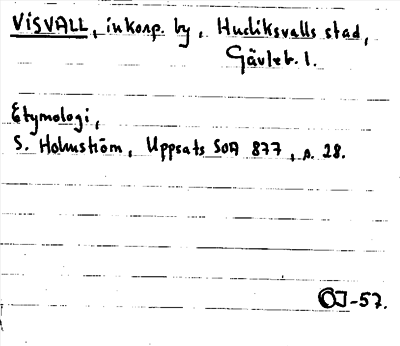 VISVALL, inkorp. by, Hudiksvalls stad,
Gävleb. l.
Etymologi,
S. Holmström, Uppsats SOA 877, s. 28.
ÖJ-57.